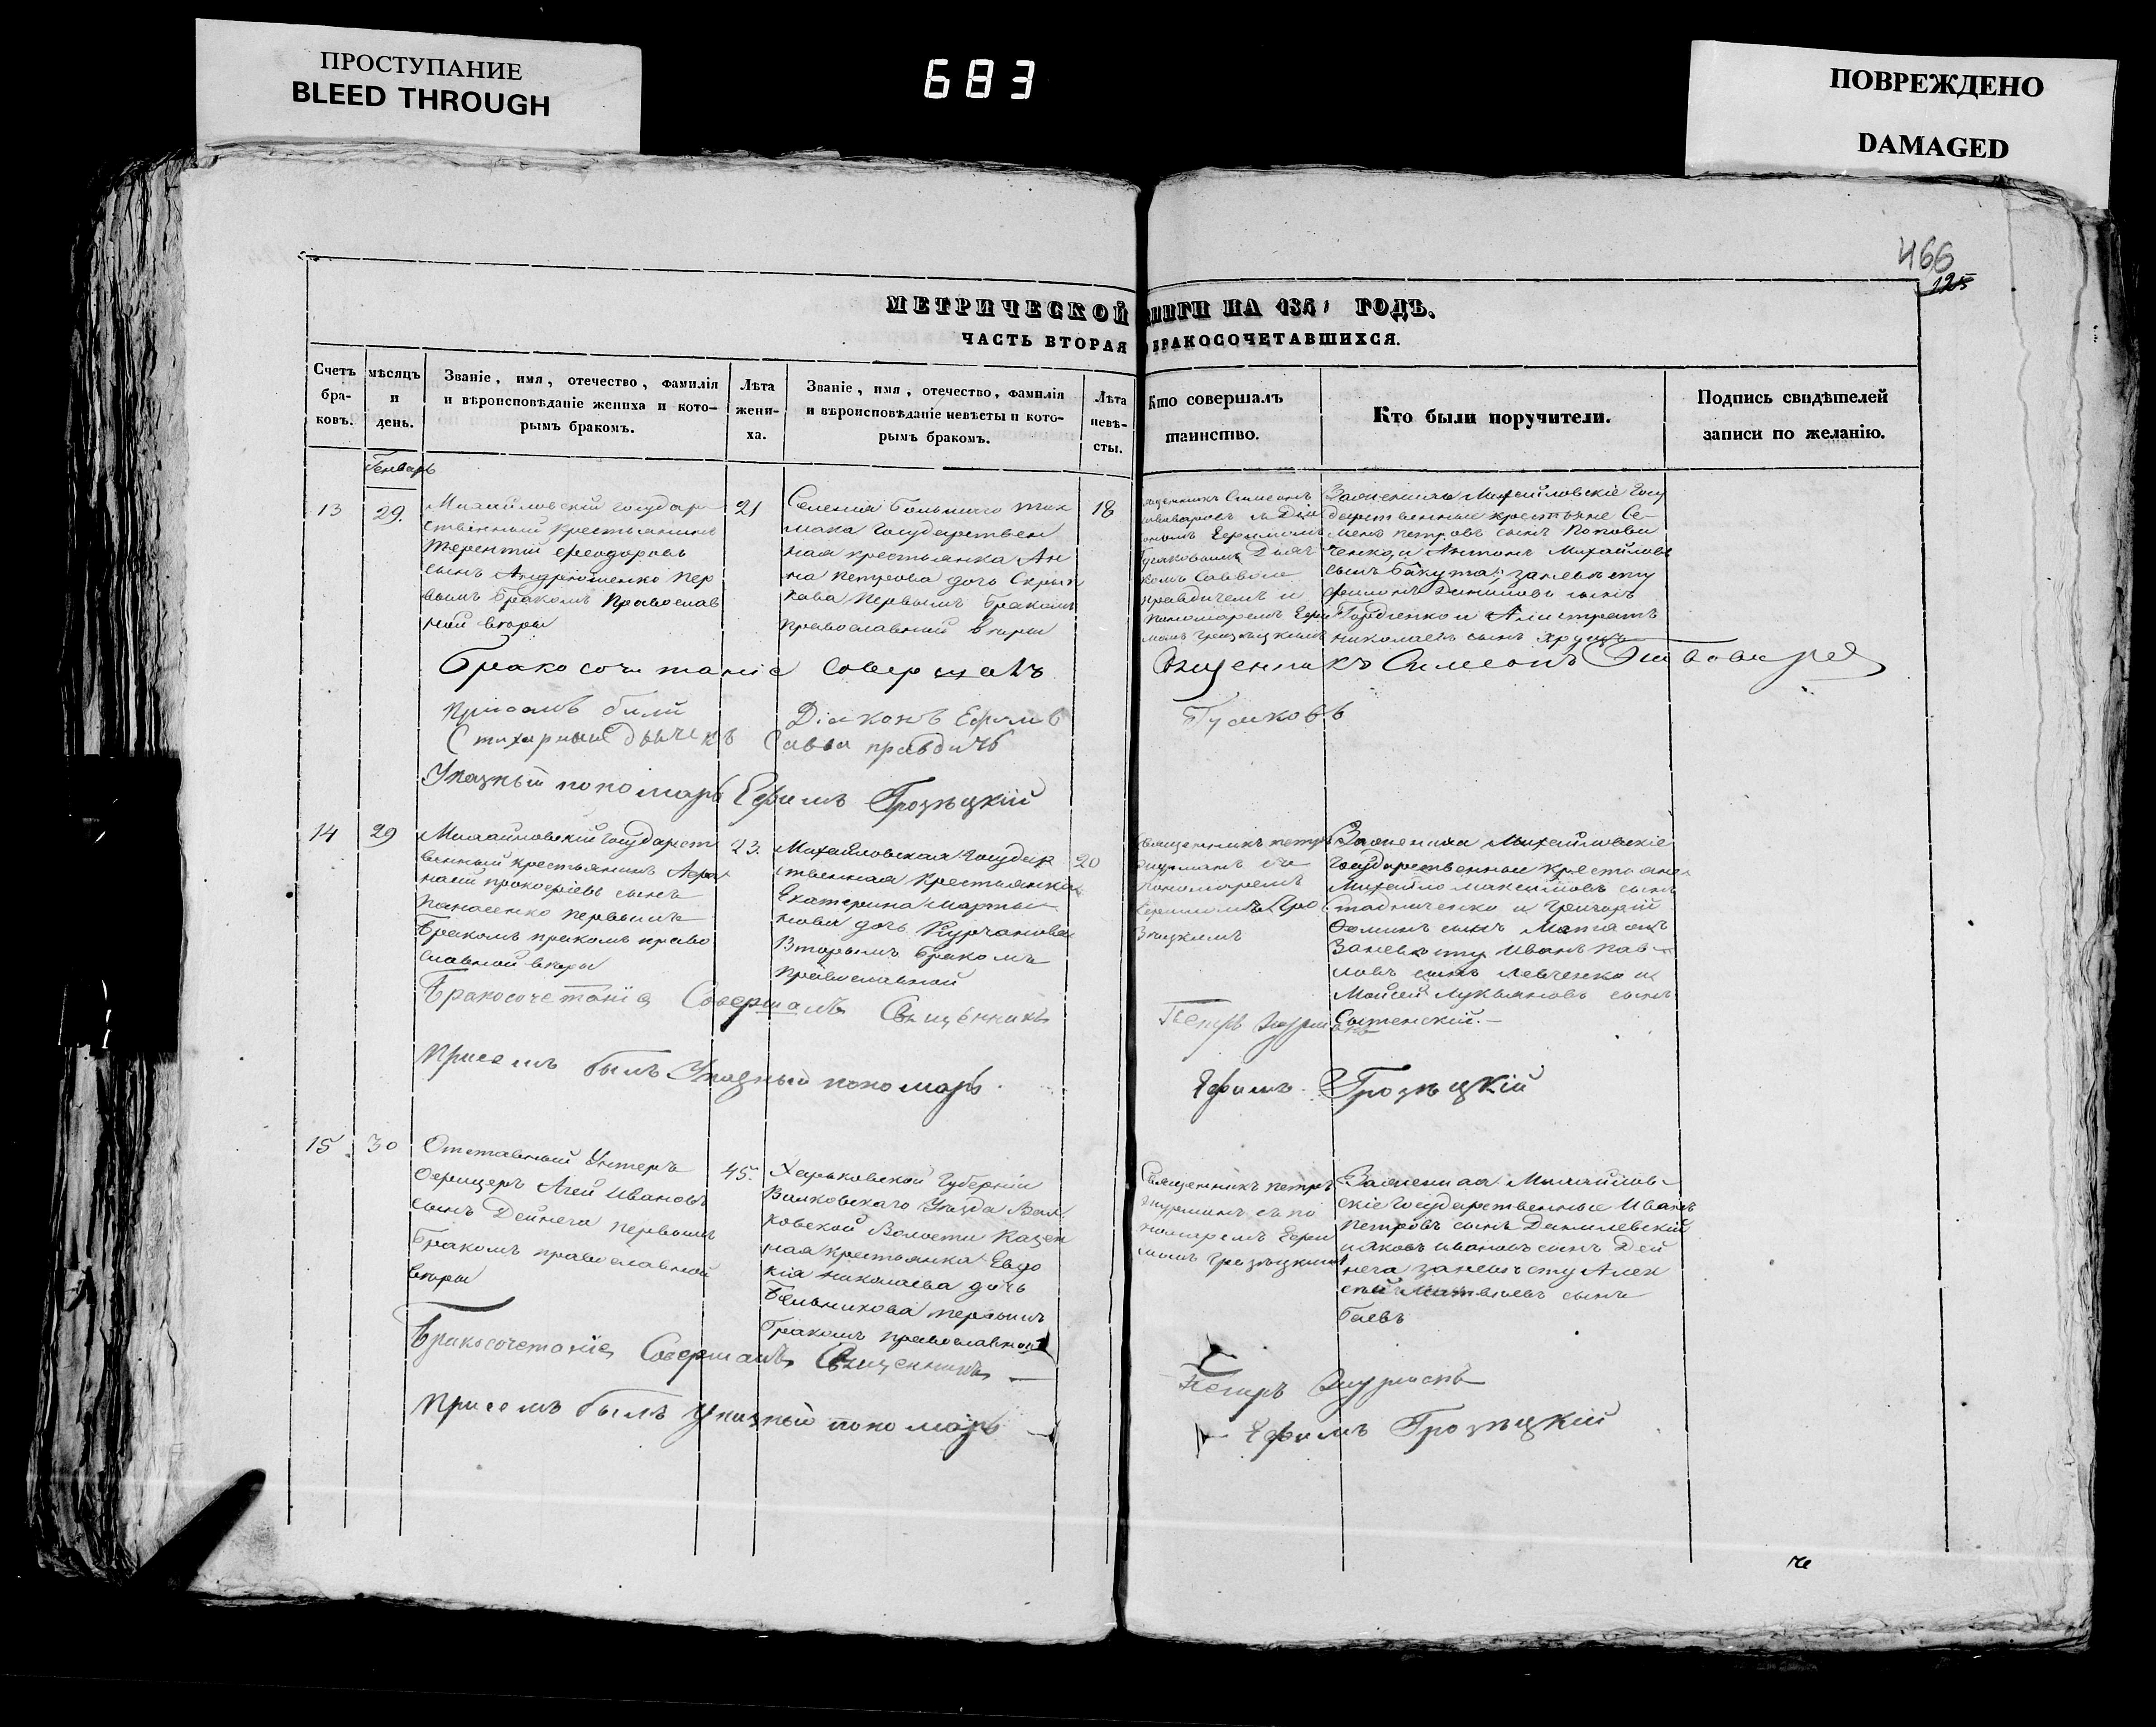 ПРОСТУПАНИЕ
BLEED THROUGH
683
ПОВРЕЖДЕНО
DAMAGED
466
125
МЕТРИЧЕСКОЙ КНИГИ НА 185 ГОДЪ.
ЧАСТЬ ВТОРАЯ БРАКОСОЧЕТАВШИХСЯ.
Счетъ бра-ковъ.
мѣсяцъ и день.
Званіе, имя, отечество, фамилія
и вѣроисповѣданіе жениха и кото-
рымъ бракомъ.
Лѣта жени-ха.
Званіе, имя, отечество, фамилія
и вѣроисповѣданіе невѣсты и кото-
рымъ бракомъ.
Лѣта невѣ-сты.
Кто совершалъ
таинство.
Кто были поручители.
Подпись свидѣтелей
записи по желанію.
Генварь
13
29.
Михайловскій государ
ственный крестьянинъ
Терентій Феодоровъ
сынъ Андрюшенко пер
вымъ бракомъ православ
ной вѣры
21
Селенія Большаго Ток
мака государствен
ная крестьянка Ан
на Петрова дочь Скрып
кова первымъ бракомъ
православной вѣры
18
Симеонъ
и Діа
кономъ Ефимомъ
Гусаковымъ Дьяч
комъ Саввою
Правдичемъ и
пономаремъ Ефи
момъ Грозецкимъ
Зажениха Михайловскіе госу
дарственные крестьяне Се
менъ Петровъ сынъ Попови
ченко и Антонъ Михайловъ
сынъ Бакута; заневѣсту
Филипъ Даниловъ сынъ
Гордіенко и Алистратъ
Николаевъ сынъ Хрущъ
Бракосочитаніе совершалъ Священникъ Симеонъ
при семъ были Діаконъ Ефимъ Гусаковъ
Стихарный дьячекъ Савва Правдичъ
Указный пономарь Ефимъ Грозецкій
14
29
Михайловскій государст
венный крестьянинъ Афа
насій Прокофіевъ сынъ
Панасенко первымъ
бракомъ православ
славной вѣры
23.
Михайловская государ
ственная крестьянка
Екатерина Марты
нова дочь Курчанова
вторымъ бракомъ
православной
20
Священникъ Петръ
съ
пономаремъ
Ефимомъ Гро
зецкимъ
Зажениха Михайловскіе
государственные крестьяне
Михайло Максимовъ сынъ
Стадниченко и Григорій
Фоминъ сынъ
Заневѣсту Иванъ Пав
ловъ сынъ Левченко и
Моисей Лукьяновъ сынъ
Сытенскій.
Бракосочетаніе Совершалъ Священникъ Петръ
при семъ былъ Указный пономарь Ефимъ Грозецкій
15.
30
Отставный Унтеръ
Офицеръ Агей Ивановъ
сынъ Дейнега первымъ
бракомъ православной
вѣры
45.
Харьковской Губерніи
Валковскаго Уѣзда Вал
ковской Волости Казен
ная крестьянка Евдо
кія Николаева дочь
Бѣльникова первымъ
бракомъ православной
Священникъ Петръ
съ по
номаремъ Ефи
момъ Грозецкимъ
Зажениха Михайлов
скіе государственные Иванъ
Петровъ сынъ Данилевскій
и Яковъ Ивановъ сынъ Дей
нега заневѣсту Алек
сѣй Матвѣевъ сынъ
Баевъ
Бракосочетаніе Совершалъ Священникъ Петръ
При семъ былъ Указный пономарь Ефимъ Грозецкій